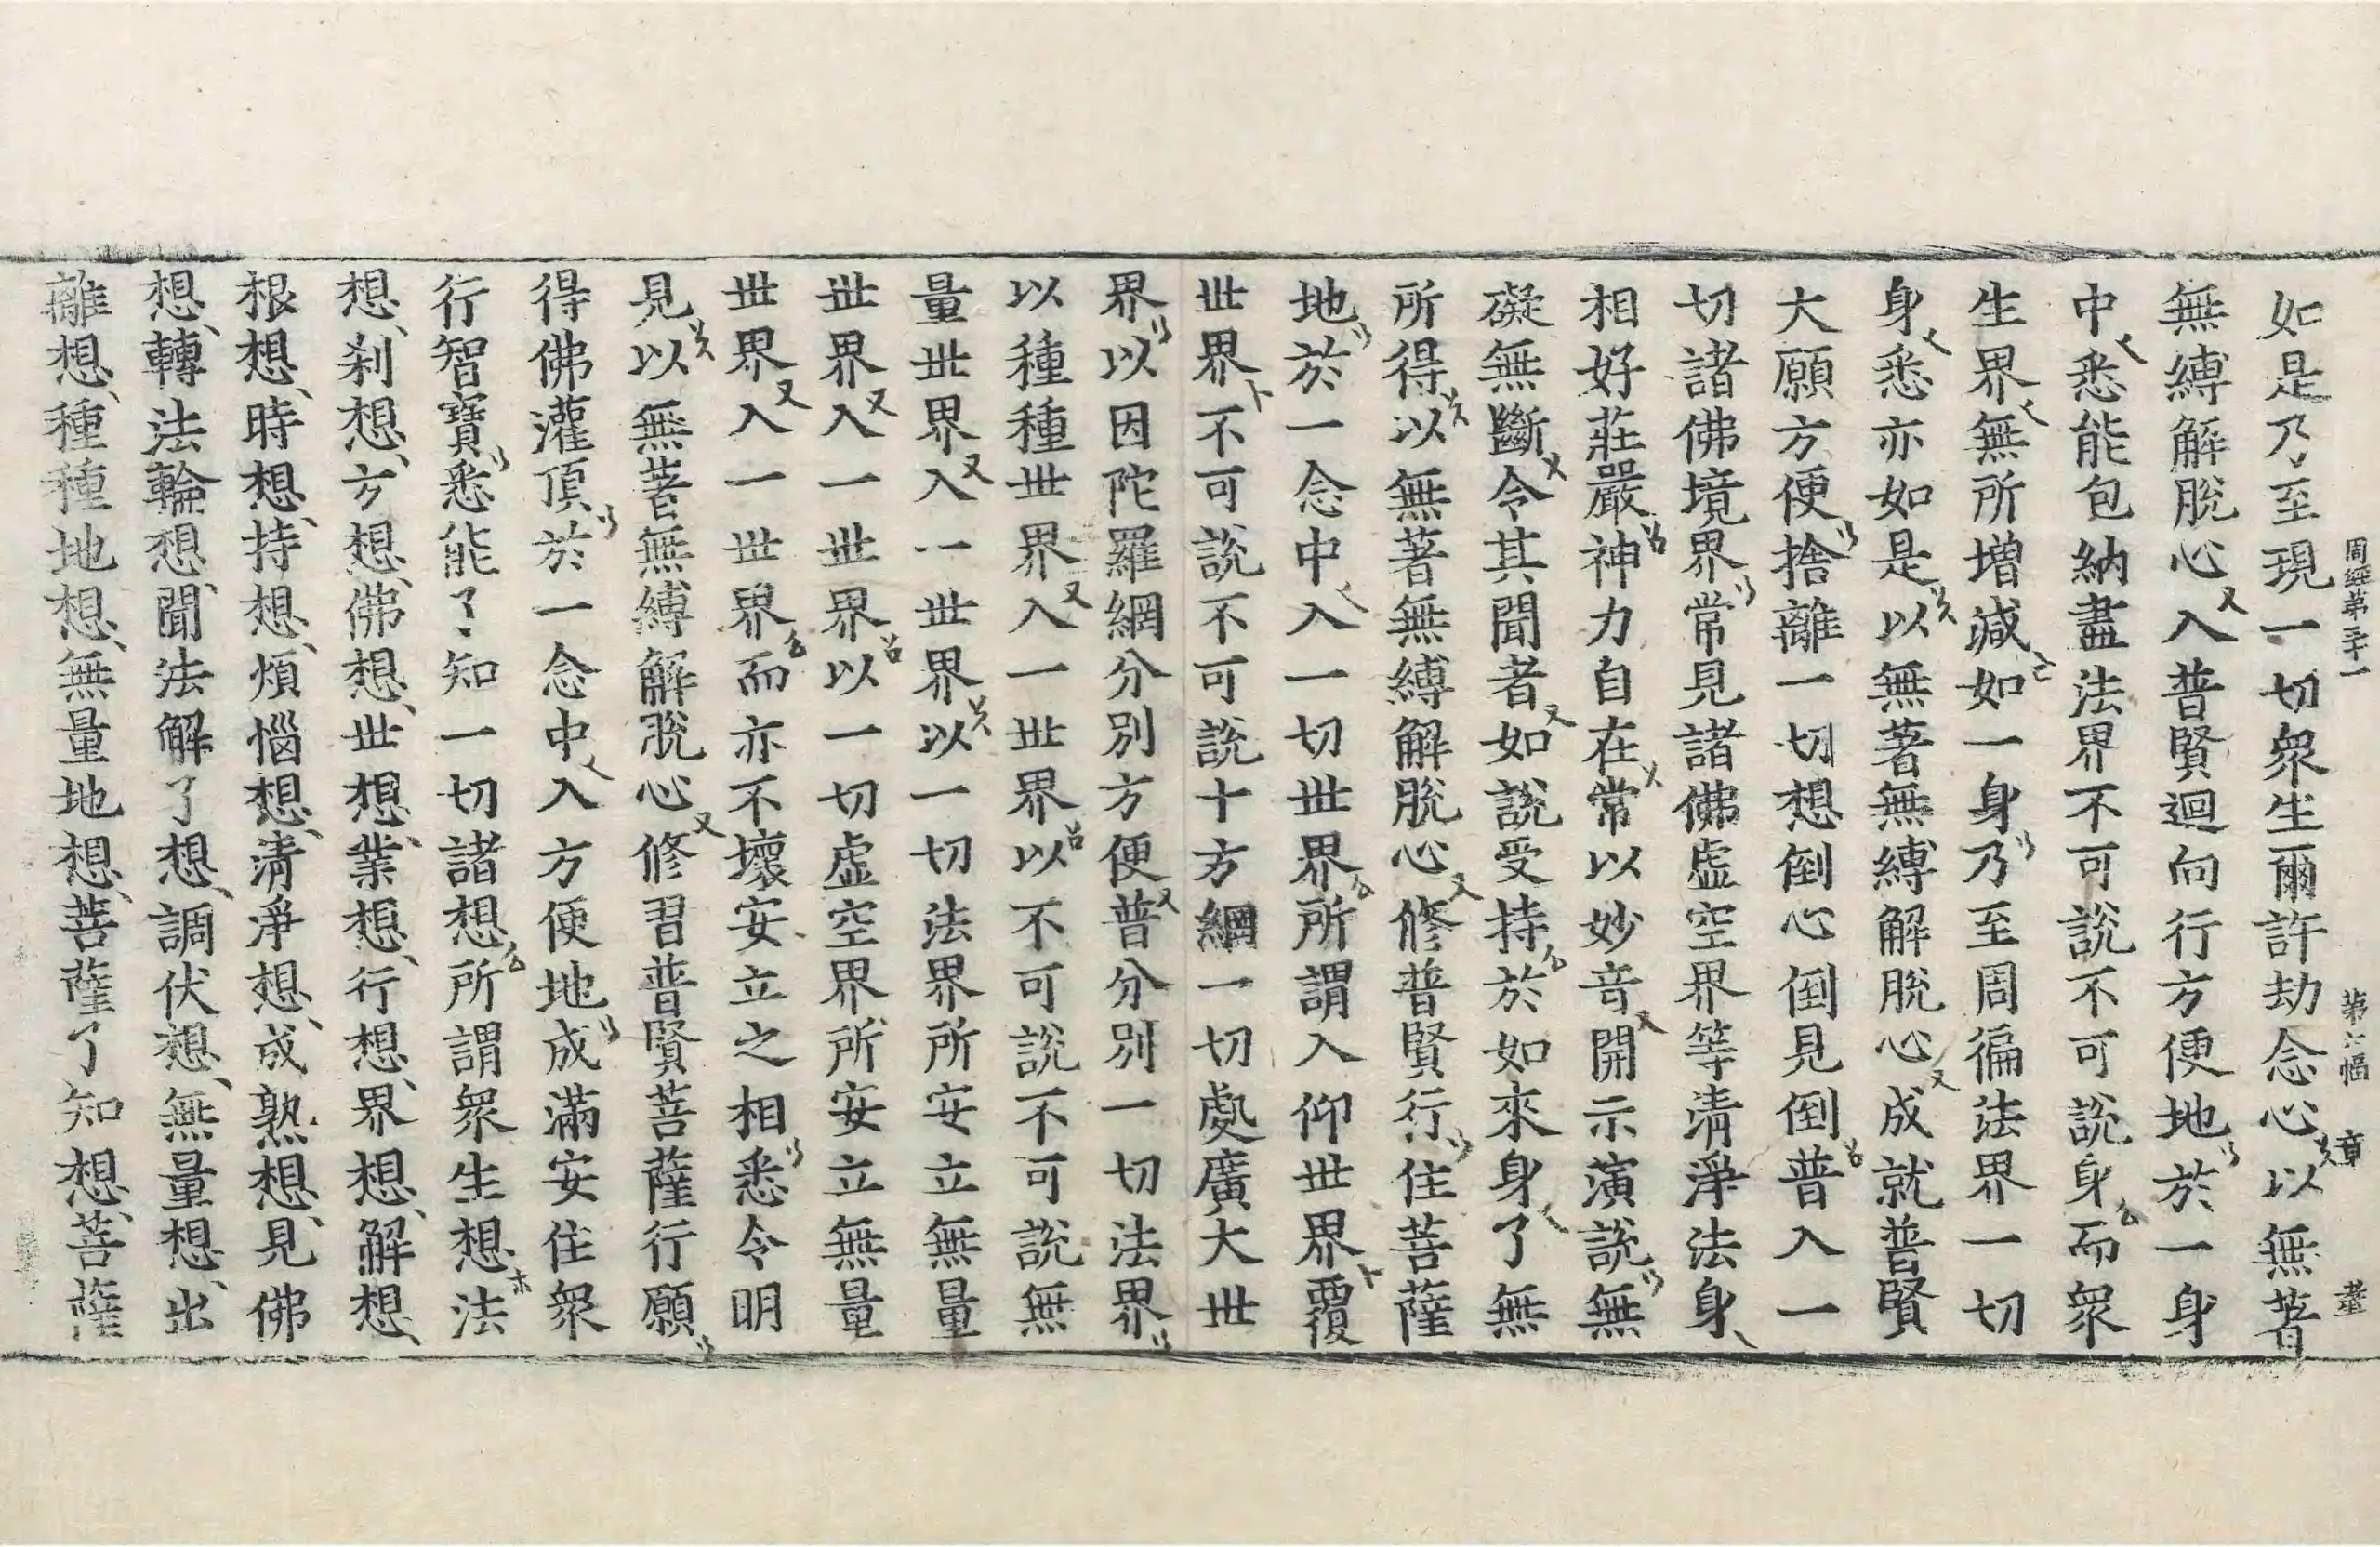 周經第三十一 第六幅 章
如是乃至現一切衆生爾許劫念心以無著
無縛解脫心入普賢迴向行方便地於一身
中悉能包納盡法界不可說不可說身而衆
生界無所增減如一身乃至周徧法界一切
身悉亦如是以無著無縛解脫心成就普賢
大願方便捨離一切想倒心倒見倒普入一
切諸佛境界常見諸佛虛空界等清淨法身
相好莊嚴神力自在常以妙音開示演說無
礙無斷令其聞者如說受持於如來身了無
所得以無著無縛解脫心修普賢行住菩薩
地於一念中入一切世界所謂入仰世界覆
世界不可說不可說十方網一切處廣大世
界以因陀羅網分別方便普分別一切法界
以種種世界入一世界以不可說不可說無
量世界入一世界以一切法界所安立無量
世界入一世界以一切虛空界所安立無量
世界入一世界而亦不壞安立之相悉令明
見以無著無縛解脫心修習普賢菩薩行願
得佛灌頂於一念中入方便地成滿安住衆
行智寶悉能了知一切諸想所謂衆生想法
想刹想方想佛想世想業想行想界想解想
根想時想持想煩惱想清淨想成熟想見佛
想轉法輪想聞法解了想調伏想無量想出
離想種種地想無量地想菩薩了知想菩薩